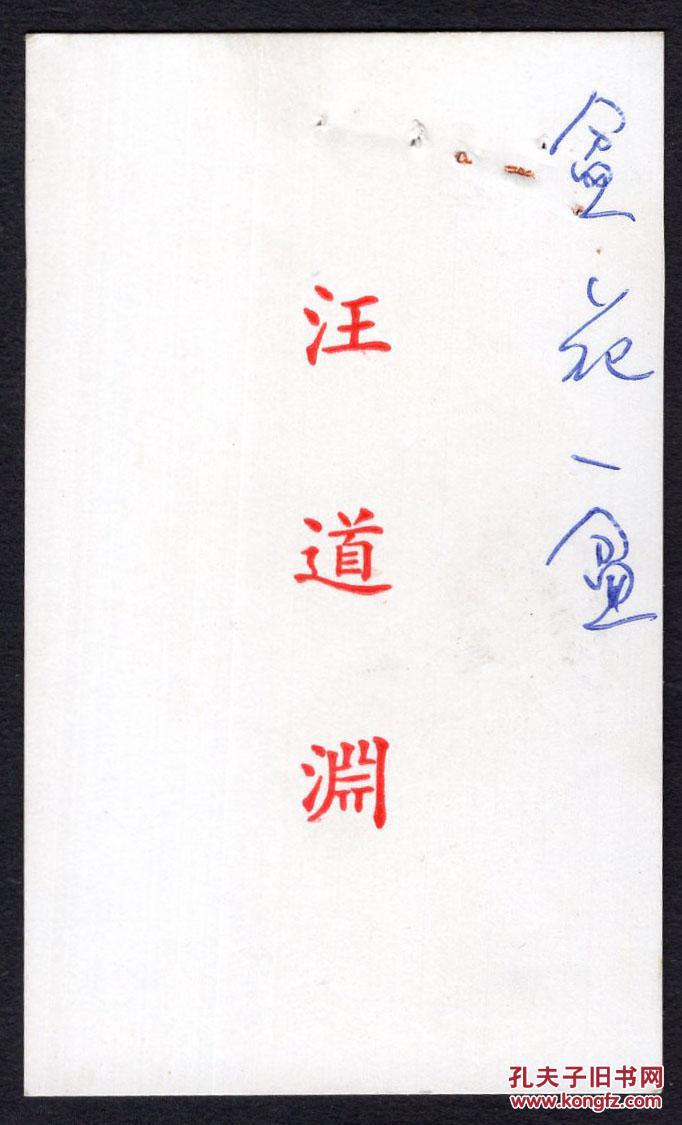 盆花一盆
汪道淵
孔夫子旧书网
www.kongfz.com